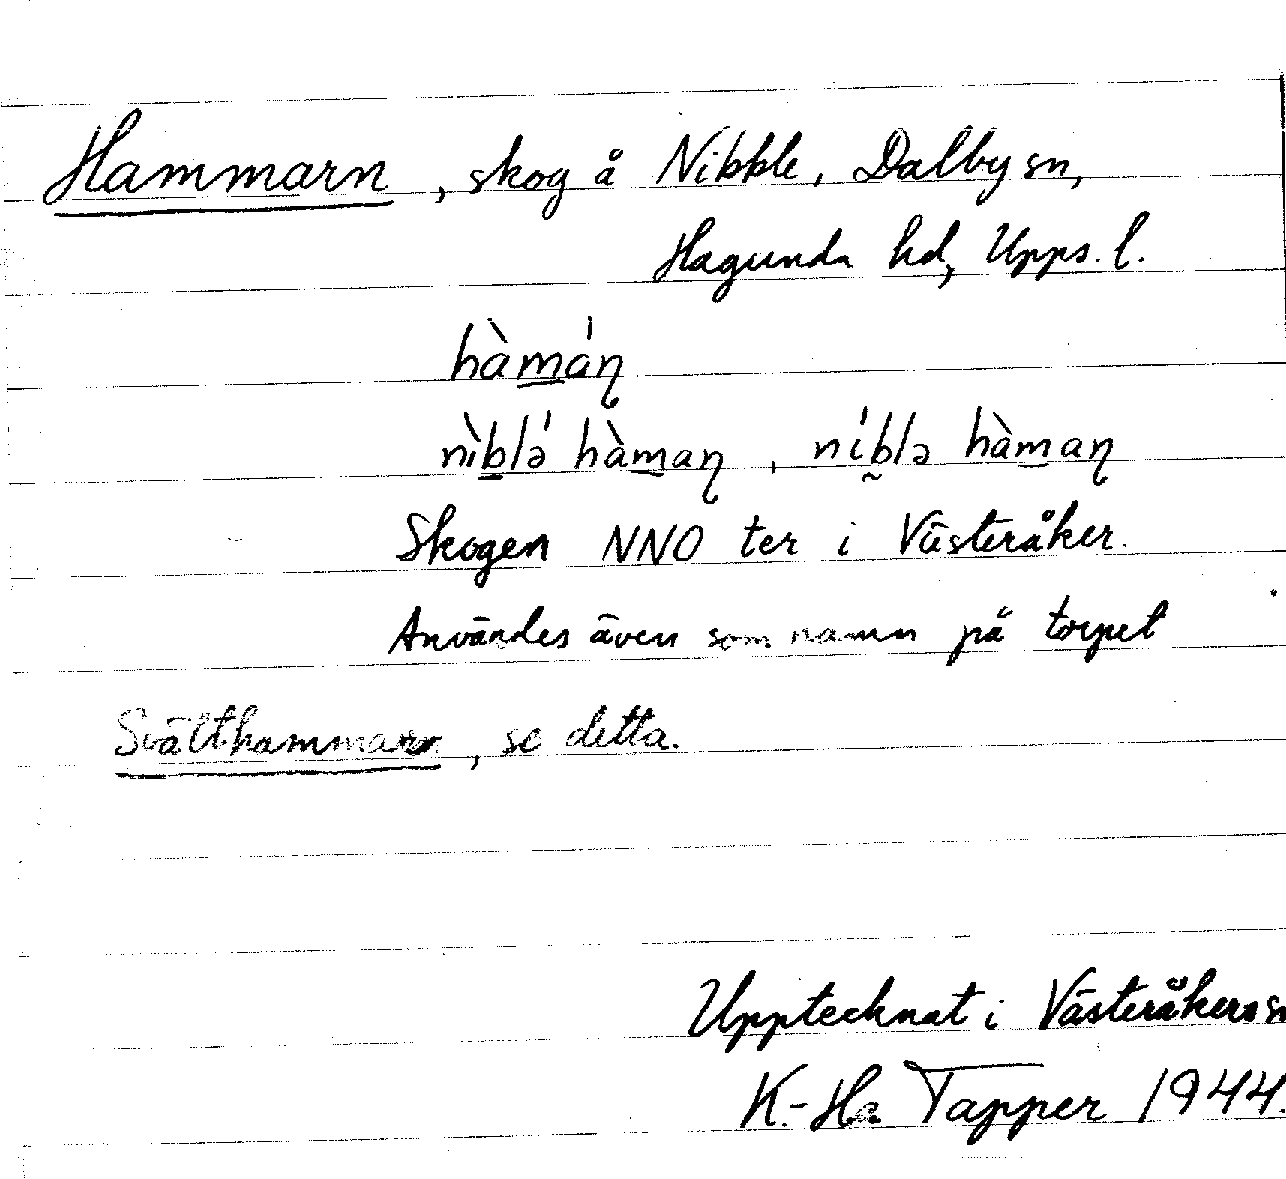 Hammarn, skog å Nibble, Dalby sn,
Hagunda hd, Upps. l.
hàmáɳ
nìblə́ hàmaɳ, níblə hàmaɳ
Skogen NNO ter i Västeråker.
Användes även som namn på torpet
Svälthammarn, se detta.
Upptecknat i Västeråkers sn
K.-Ha. Tapper 1944.